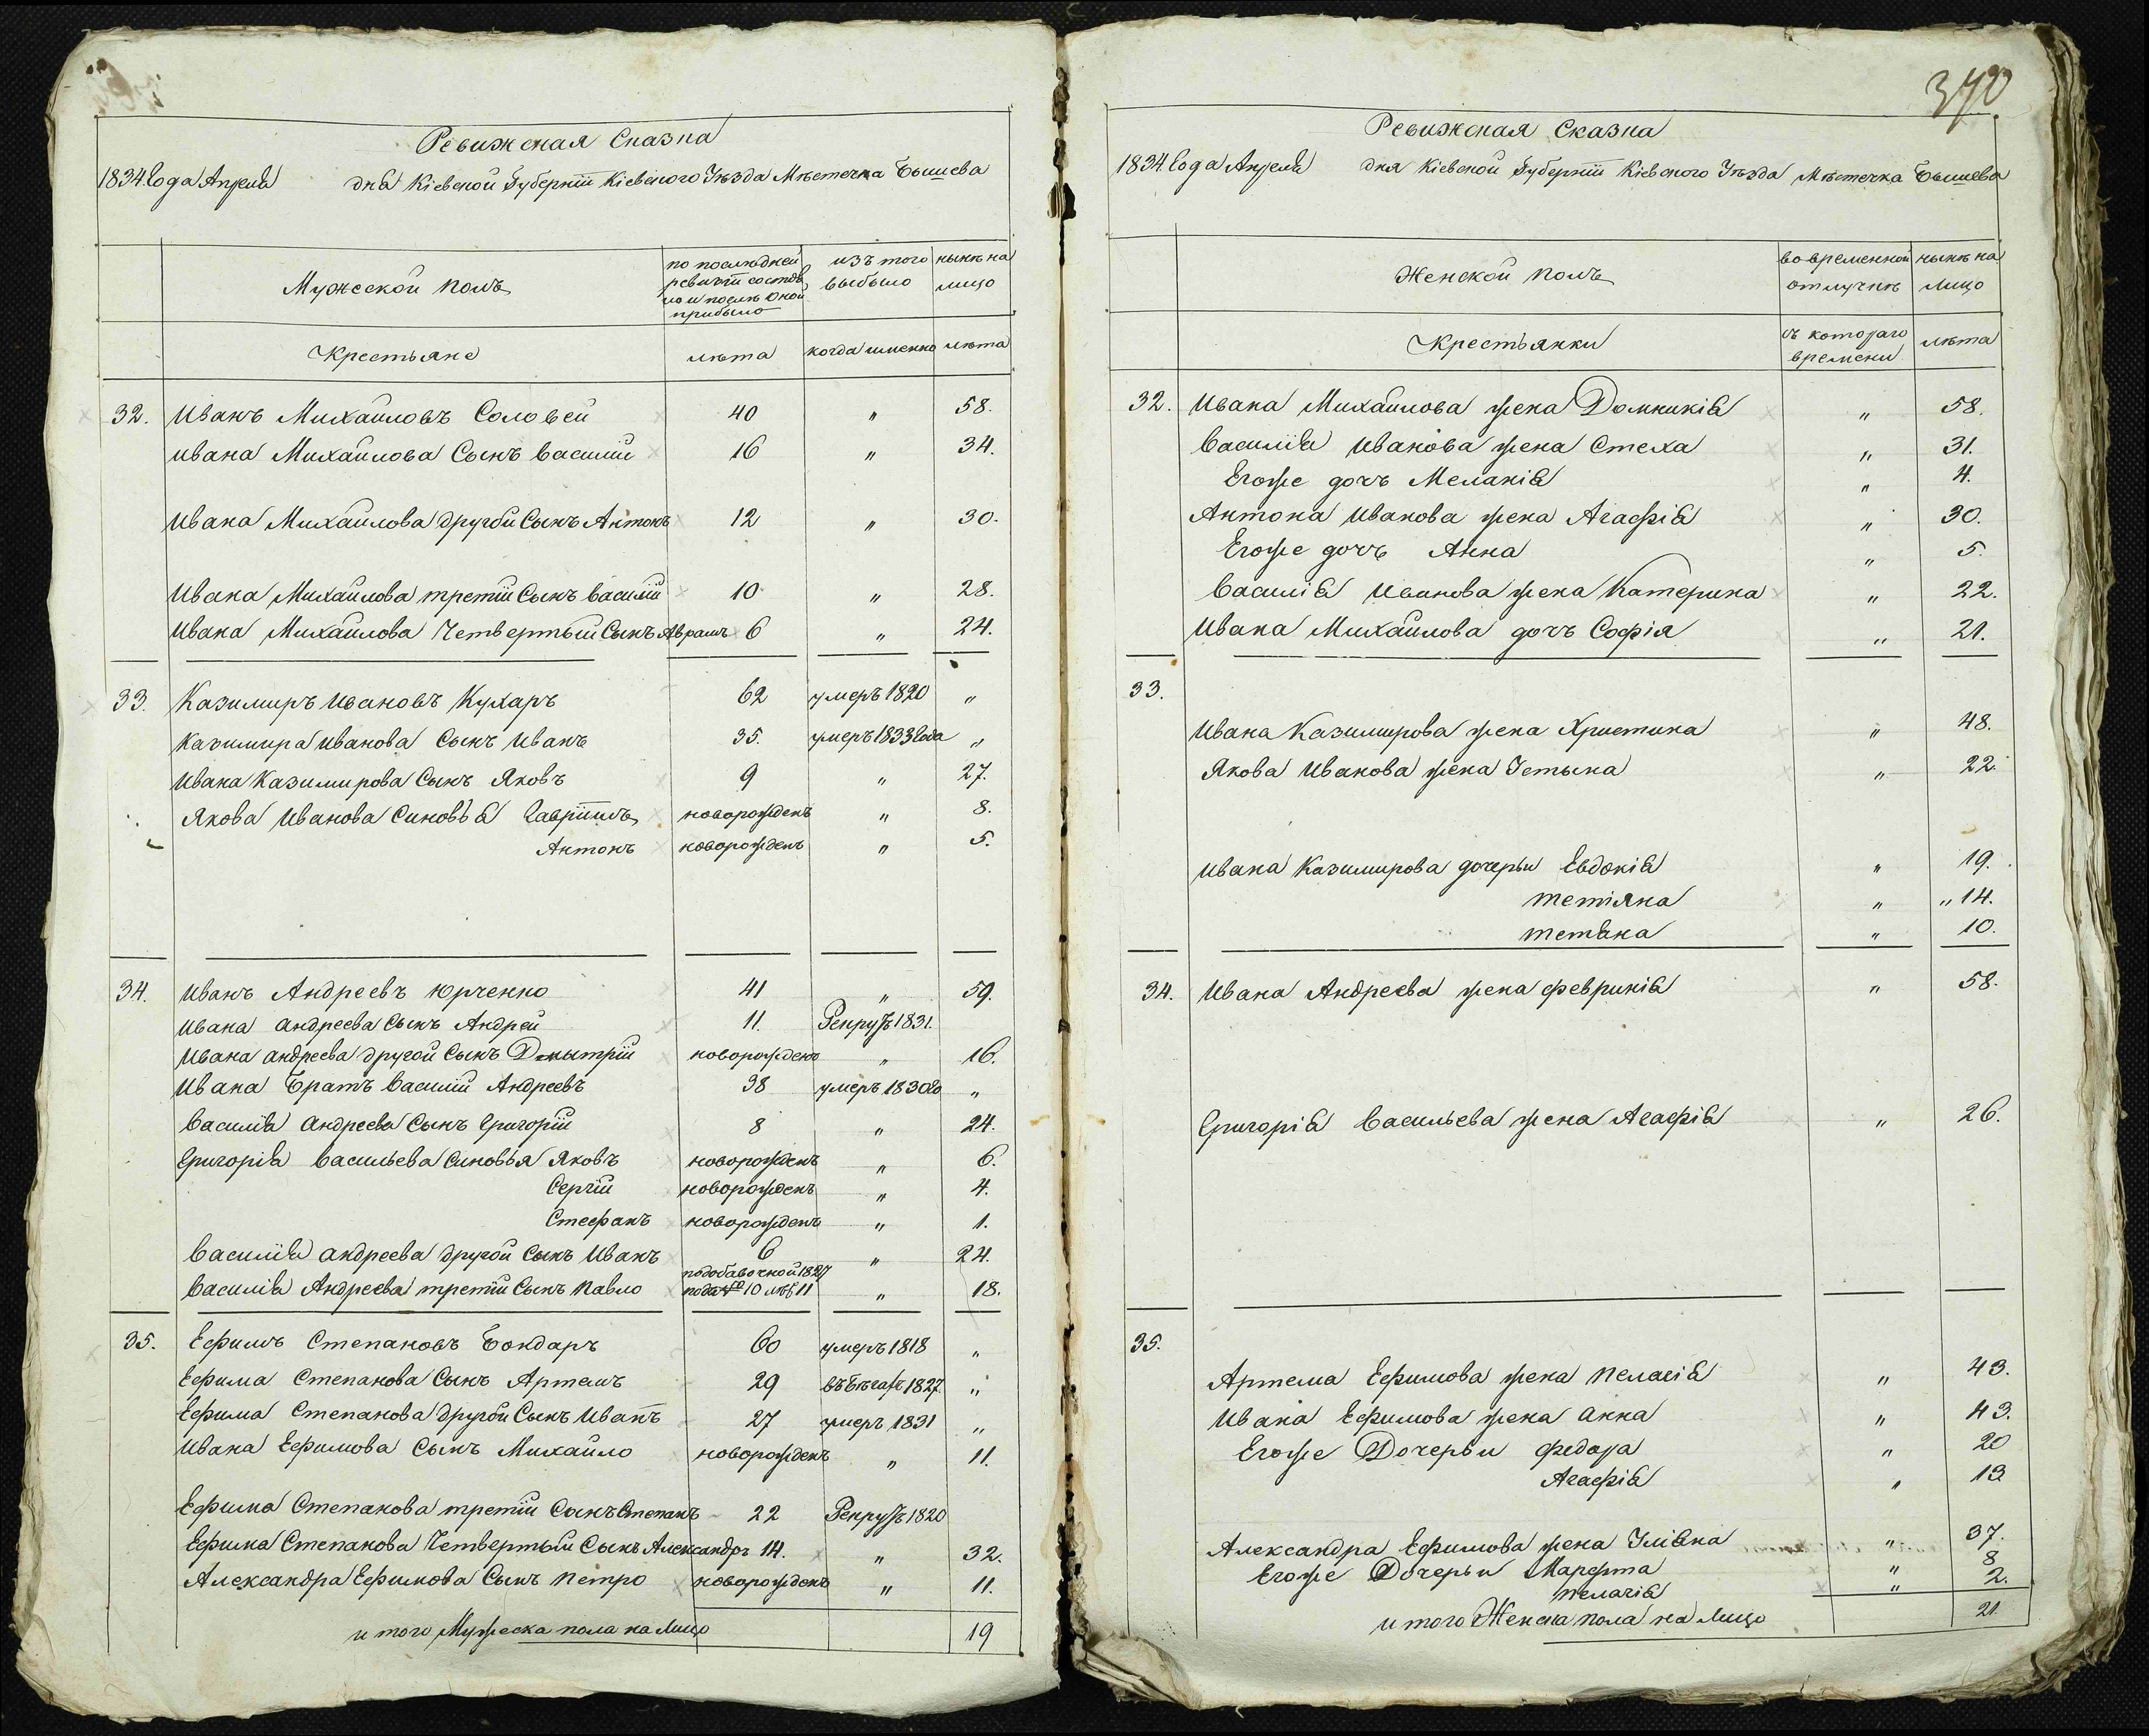 Ревижская Сказка
1834 Года Апреля дня Кіевской Губерніи Кіевского Уѣзда Мѣстечка Бышева
Мужеской полъ
по последней ревизіи состояло и послѣ оной прибыло
изъ того выбыло
нынѣ на лицо
Крестьяне
лѣта
когда именно
лѣта
32. Иванъ Михайловъ Соловей 40 " 58.
Ивана Михайлова Сынъ Василий 16 " 34.
Ивана Михайлова другой Сынъ Антонъ 12 " 30.
Ивана Михайлова третій Сынъ Василій 10 " 28.
Ивана Михайлова Четвертый Сынъ Аврамъ 6 " 24.
33. Казимиръ Ивановъ Кухаръ 62 умеръ 1820 "
Казимира Иванова Сынъ Иванъ 35. умеръ 1833 Года "
Ивана Казимирова Сынъ Яковъ 9 " 27.
Якова Иванова Синовья Гавріилъ новорожденъ " 8.
Антонъ новорожденъ " 5.
34. Иванъ Андреевъ Юрченко 41 " 59.
Ивана Андреева Сынъ Андрей 11. Рекрутъ 1831.
Ивана Андреева другой Сынъ Дмытрій новорожденъ " 16.
Ивана Братъ Василій Андреевъ 38 умеръ 1830 го "
Василія Андреева Сынъ Григорій 8 " 24.
Григорія Васильева Синовья Яковъ новорожденъ " 6.
Сергій новорожденъ " 4.
Стефанъ новорожденъ " 1.
Василія Андреева другой Сынъ Иванъ 6 " 24.
Василія Андреева третій Сынъ Павло подобавочной 1827 10 лѣт 11 " 18.
35. Ефимъ Степановъ Бондаръ 60 умеръ 1818 "
Ефима Степанова Сынъ Артемъ 29 въ Бѣгахъ 1827. "
Ефима Степанова другой Сынъ Иванъ 27 умеръ 1831 "
Ивана Ефимова Сынъ Михайло новорожденъ " 11.
Ефима Степанова третій Сынъ Степанъ 22 Рекрутъ 1820
Ефима Степанова Четвертый Сынъ Александръ 14. " 32.
Александра Ефимова Сынъ Петро новорожденъ " 11.
и того Мужеска пола на Лицо 19
370
Ревижская Сказка
1834 Года Апреля дня Кіевской Губерніи Кіевского Уѣзда Мѣстечка Бышева
Женской полъ
во временной отлучкѣ
нынѣ на лицо
Крестьянки
съ котораго времени
лѣта
32. Ивана Михайлова жена Домникія " 58.
Василія Иванова жена Стеха " 31.
Егоже дочъ Меланія " 4.
Антона Иванова жена Агафія " 30.
Егоже дочъ Анна " 5.
Василія Иванова жена Катерина " 22.
Ивана Михайлова дочъ Софія " 21.
33.
Ивана Казимирова жена Христина " 48.
Якова Иванова жена Устына " 22.
Ивана Казимирова дочерьи Евдокія " 19.
Тетіяна " " 14.
Тетяна " 10.
34. Ивана Андреева жена Февринія " 58.
Григорія Васильева жена Агафія " 26.
35.
Артема Ефимова жена Пелагія " 43.
Ивана Ефимова жена Анна " 43.
Егоже Дочерьи Федора " 20
Агафія " 13
Александра Ефимова жена Уліяна " 37.
Егоже Дочерьи Марфта " 8
Пелагія " 2.
и того Женска пола на Лицо 21